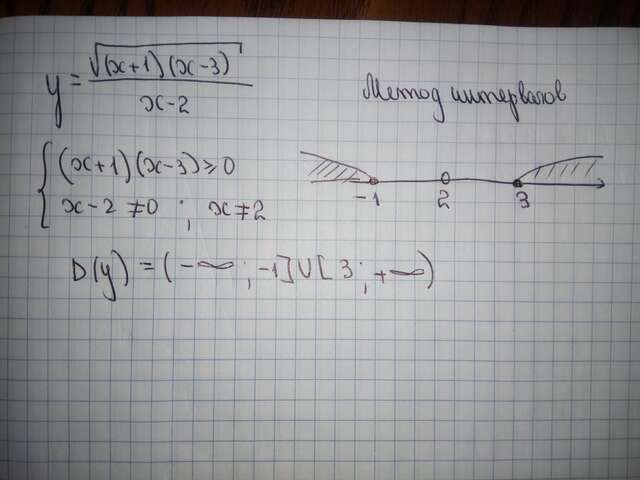 y = √(x+1)(x-3) / x-2
Метод интервалов
{ (x+1)(x-3) ≥ 0
x-2 ≠ 0 ; x ≠ 2
-1 2 3
D(y) = (-∞ ; -1] U [ 3 ; +∞)